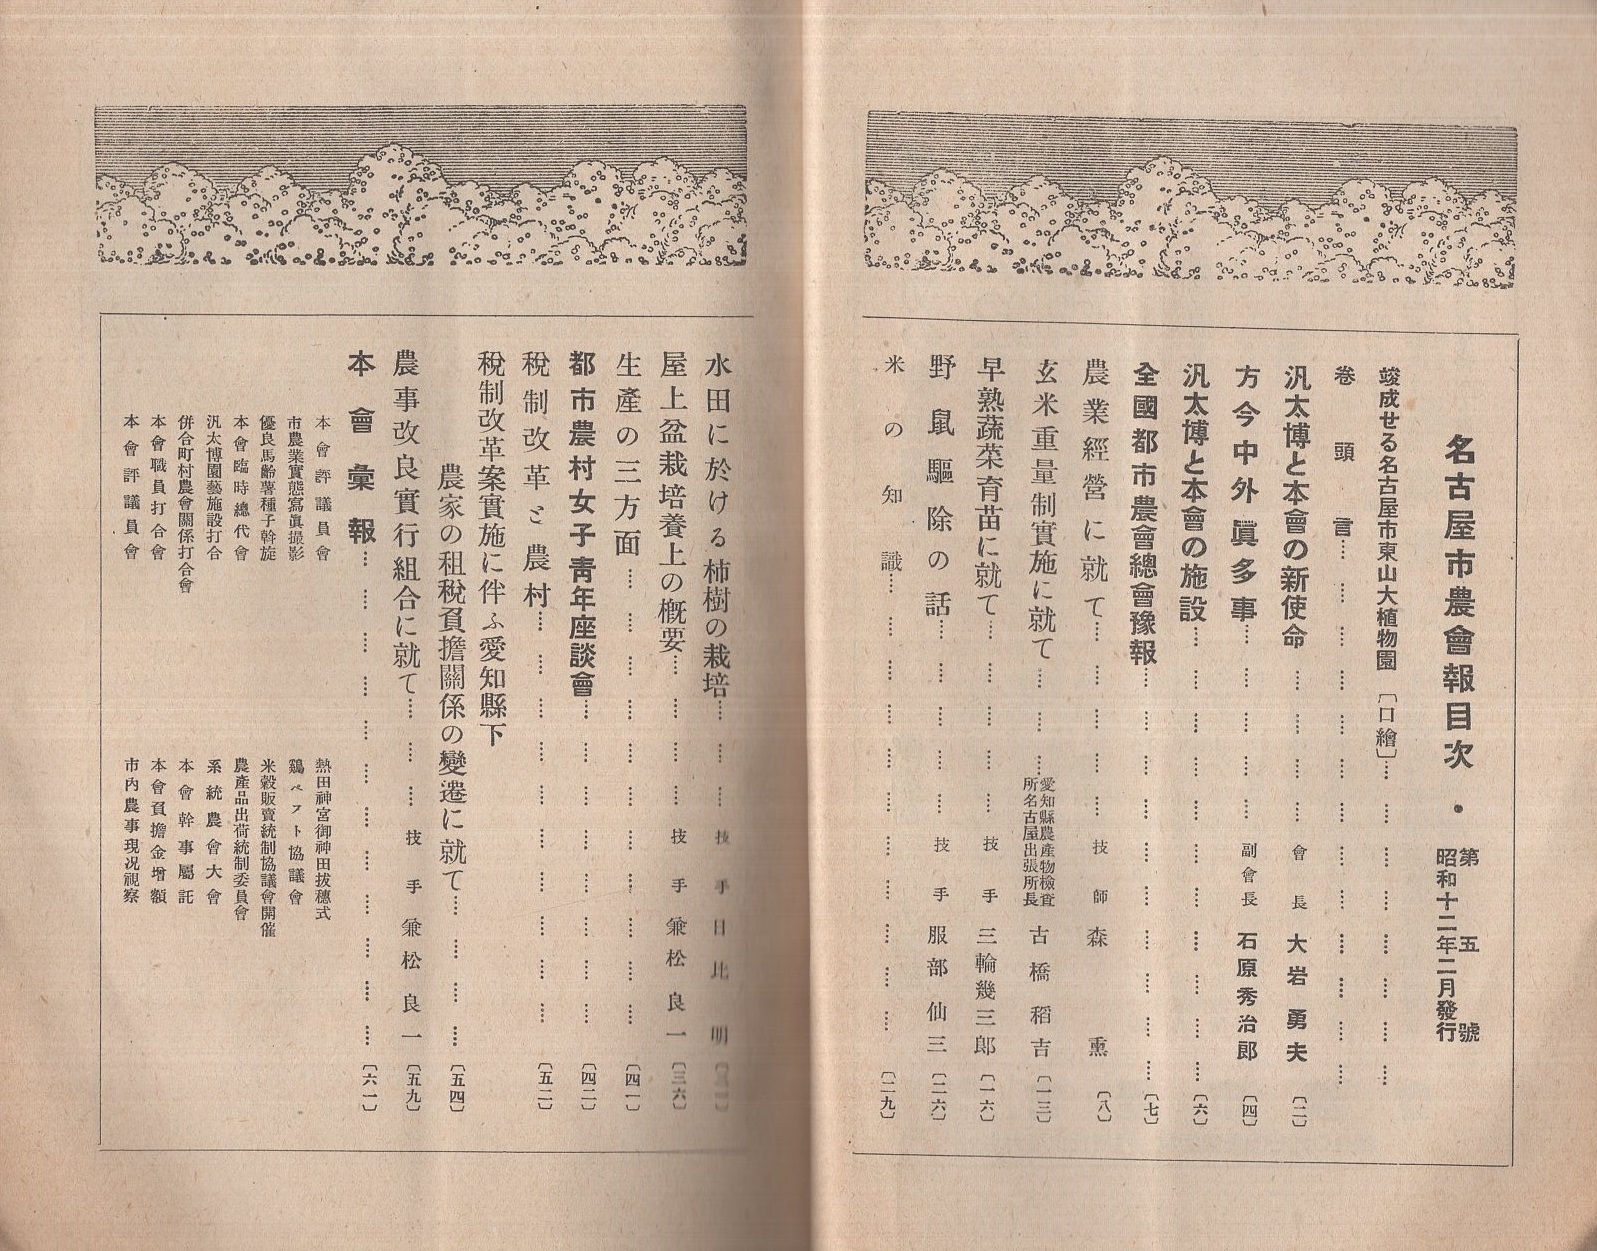 名古屋市農會報目次・第五號
昭和十二年二月發行
竣成せる名古屋市東山大植物園〔口繪〕
卷頭言
汎太博と本會の新使命 會長 大岩勇夫〔二〕
方今中外眞多事 副會長 石原秀治郎〔四〕
汎太博と本會の施設〔六〕
全國都市農會總會豫報〔七〕
農業經營に就て 技師 森熏〔八〕
玄米重量制實施に就て 愛知縣農產物檢査所名古屋出張所長 古橋稻吉〔一三〕
早熟蔬菜育苗に就て 技手 三輪幾三郎〔一六〕
野鼠驅除の話 技手 服部仙三〔二六〕
米の知識〔二九〕
水田に於ける柿樹の栽培 技手 日比明
屋上盆栽培養上の槪要 技手 兼松良一〔三六〕
生產の三方面〔四一〕
都市農村女子靑年座談會〔四二〕
稅制改革と農村〔五二〕
稅制改革案實施に伴ふ愛知縣下
農家の租稅負擔關係の變遷に就て〔五四〕
農事改良實行組合に就て 技手 兼松良一〔五九〕
本會彙報〔六一〕
本會評議員會
市農業實態寫眞撮影
優良馬齡薯種子斡旋
本會臨時總代會
汎太博園藝施設打合
併合町村農會關係打合會
本會職員打合會
本會評議員會
熱田神宮御神田拔穗式
鷄ペスト協議會
米穀販賣統制協議會開催
農產品出荷統制委員會
系統農會大會
本會幹事屬託
本會負擔金增額
市內農事現況視察